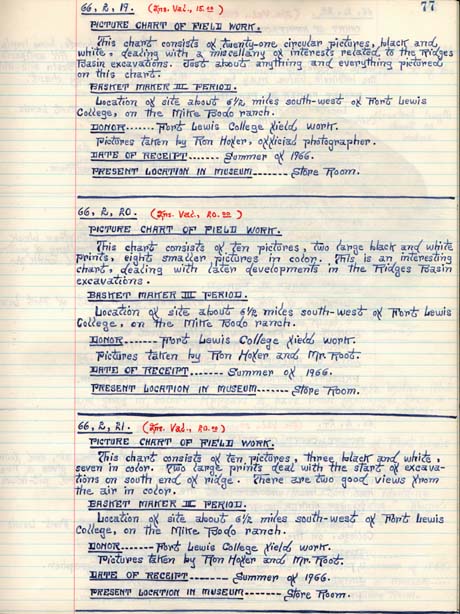 77
66, 2, 19. (Ins. Val., 15.00)
PICTURE CHART OF FIELD WORK.
This chart consists of twenty-one circular pictures, black and
white, dealing with a miscellany of interests related to the Ridges
Basin excavations. Just about anything and everything pictured
on this chart.
BASKET MAKER III PERIOD.
Location of site about 6½ miles south-west of Fort Lewis
College, on the Mike Bodo ranch.
DONOR...... Fort Lewis College field work.
Pictures taken by Ron Hoxer, official photographer.
DATE OF RECEIPT------- Summer of 1966.
PRESENT LOCATION IN MUSEUM------- Store Room.
66, 2, 20. (Ins. Val., 20.00)
PICTURE CHART OF FIELD WORK.
This chart consists of ten pictures, two large black and white
prints, eight smaller pictures in color. This is an interesting
chart, dealing with later developments in the Ridges Basin
excavations.
BASKET MAKER III PERIOD.
Location of site about 6½ miles south-west of Fort Lewis
College, on the Mike Bodo ranch.
DONOR------- Fort Lewis College field work.
Pictures taken by Ron and Mr. Root.
DATE OF RECEIPT------- Summer of 1966.
PRESENT LOCATION IN MUSEUM------- Store Room.
66, 2, 21. (Ins. Val., 20.00)
PICTURE CHART OF FIELD WORK.
This chart consists of ten pictures, three black and white,
seven in color. Two large prints deal with the start of excava-
tions on south end of ridge. There are two good views from
the air in color.
BASKET MAKER III PERIOD.
Location of site about 6½ miles south-west of Fort Lewis
College, on the Mike Bodo ranch.
DONOR------- Fort Lewis College field work.
Pictures taken by Ron and Mr. Root.
DATE OF RECEIPT------- Summer of 1966.
PRESENT LOCATION IN MUSEUM------- Store Room.